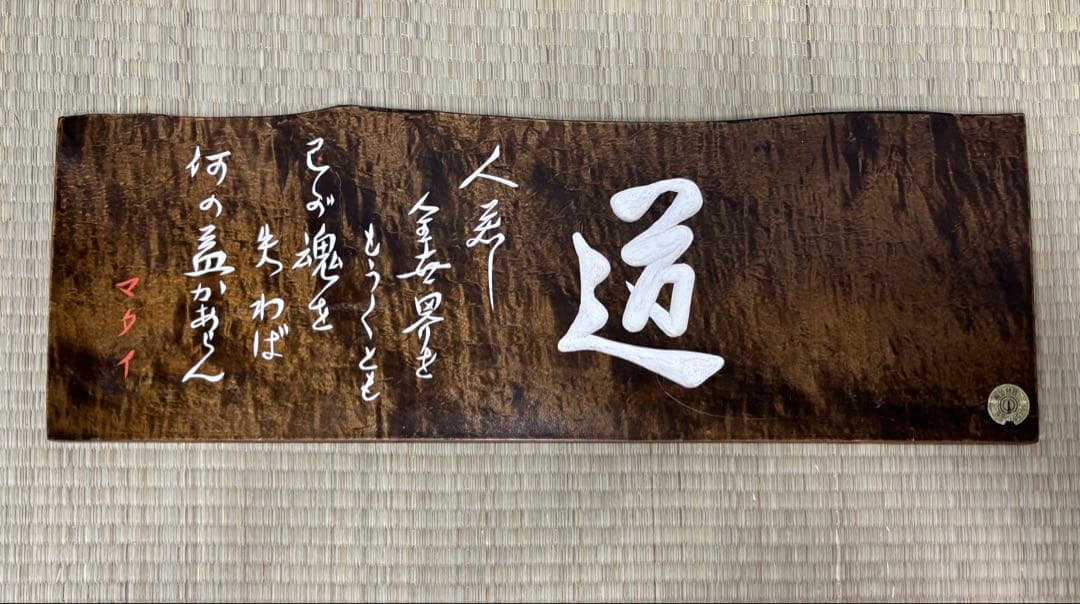 道
人若し
全世界を
もうくとも
己が魂を
失わば
何の益かあらん
マタイ